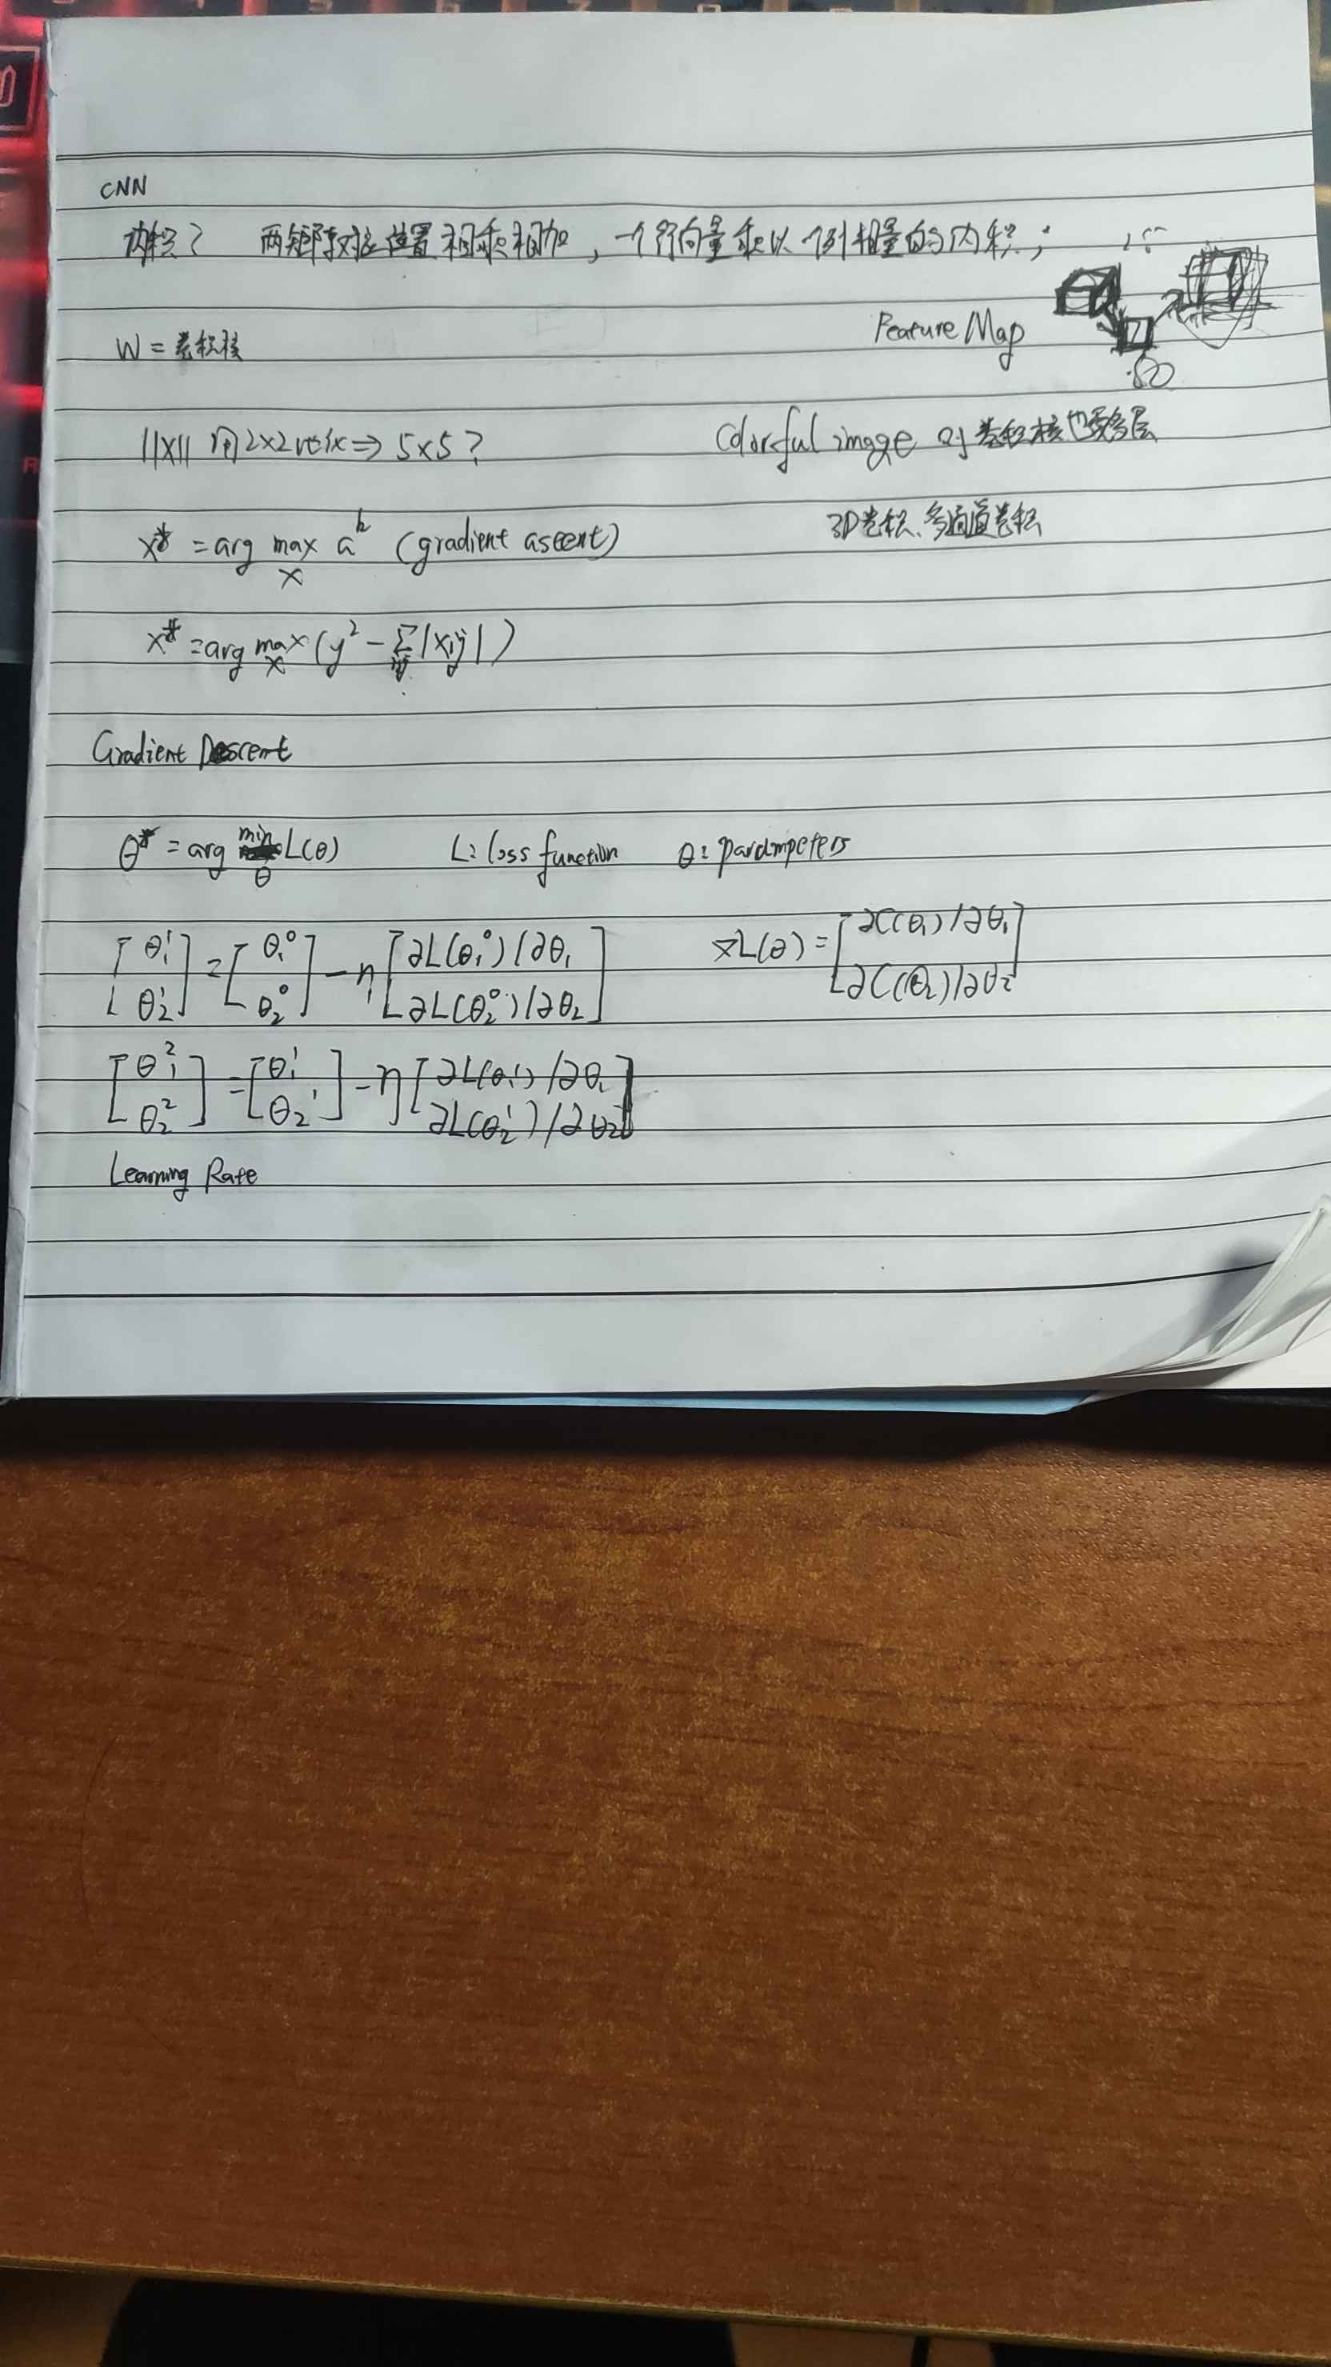 CNN
内积? 两矩阵对应位置相乘相加，一个行向量乘以一个列相量的内积；
W = 卷积核
Feature Map
||X|| 用2×2 ⇒ 5×5?
Colorful image 的卷积核也要多层
3D卷积、多通道卷积
x* = arg max a^k (gradient ascent)
x
x* = arg max (y² - Σ |xij|)
x ij
Gradient Descent
θ* = arg min L(θ) L: loss function θ:
θ
[θ₁¹ θ₂¹] = [θ₁⁰ θ₂⁰] - η [∂L(θ₁⁰)/∂θ₁ ∂L(θ₂⁰)/∂θ₂]
∇L(θ) = [∂C(θ₁)/∂θ₁ ∂C(θ₂)/∂θ₂]
[θ₁² θ₂²] = [θ₁¹ θ₂¹] - η [∂L(θ₁¹)/∂θ₁ ∂L(θ₂¹)/∂θ₂]
Learning Rate